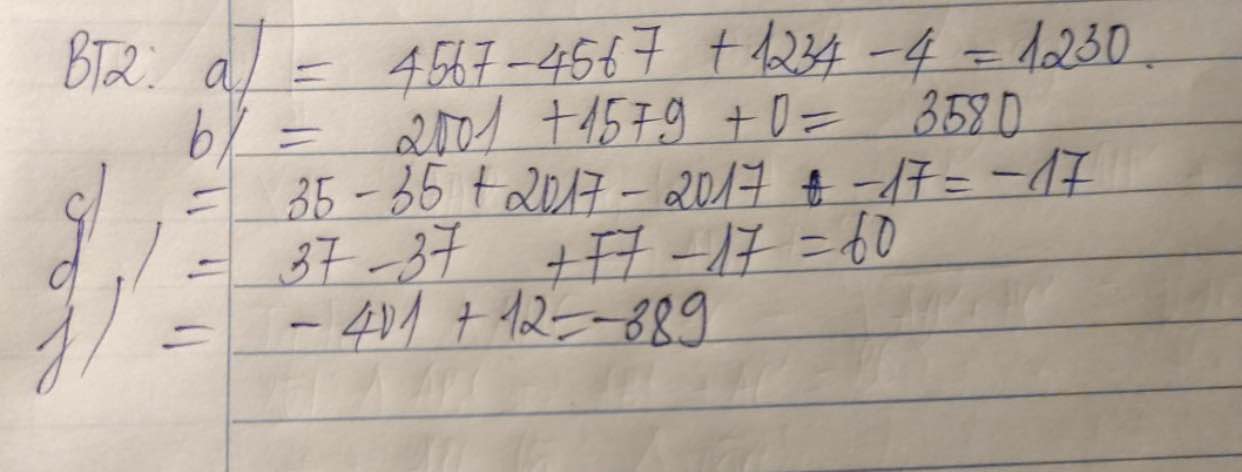 BT2: a) = 4567 - 4567 + 1234 - 4 = 1230.
b) = 2001 + 1579 + 0 = 3580
c) = 35 - 35 + 2017 - 2017 - 17 = -17
d) = 37 - 37 + 77 - 17 = 60
f) = - 401 + 12 = -389